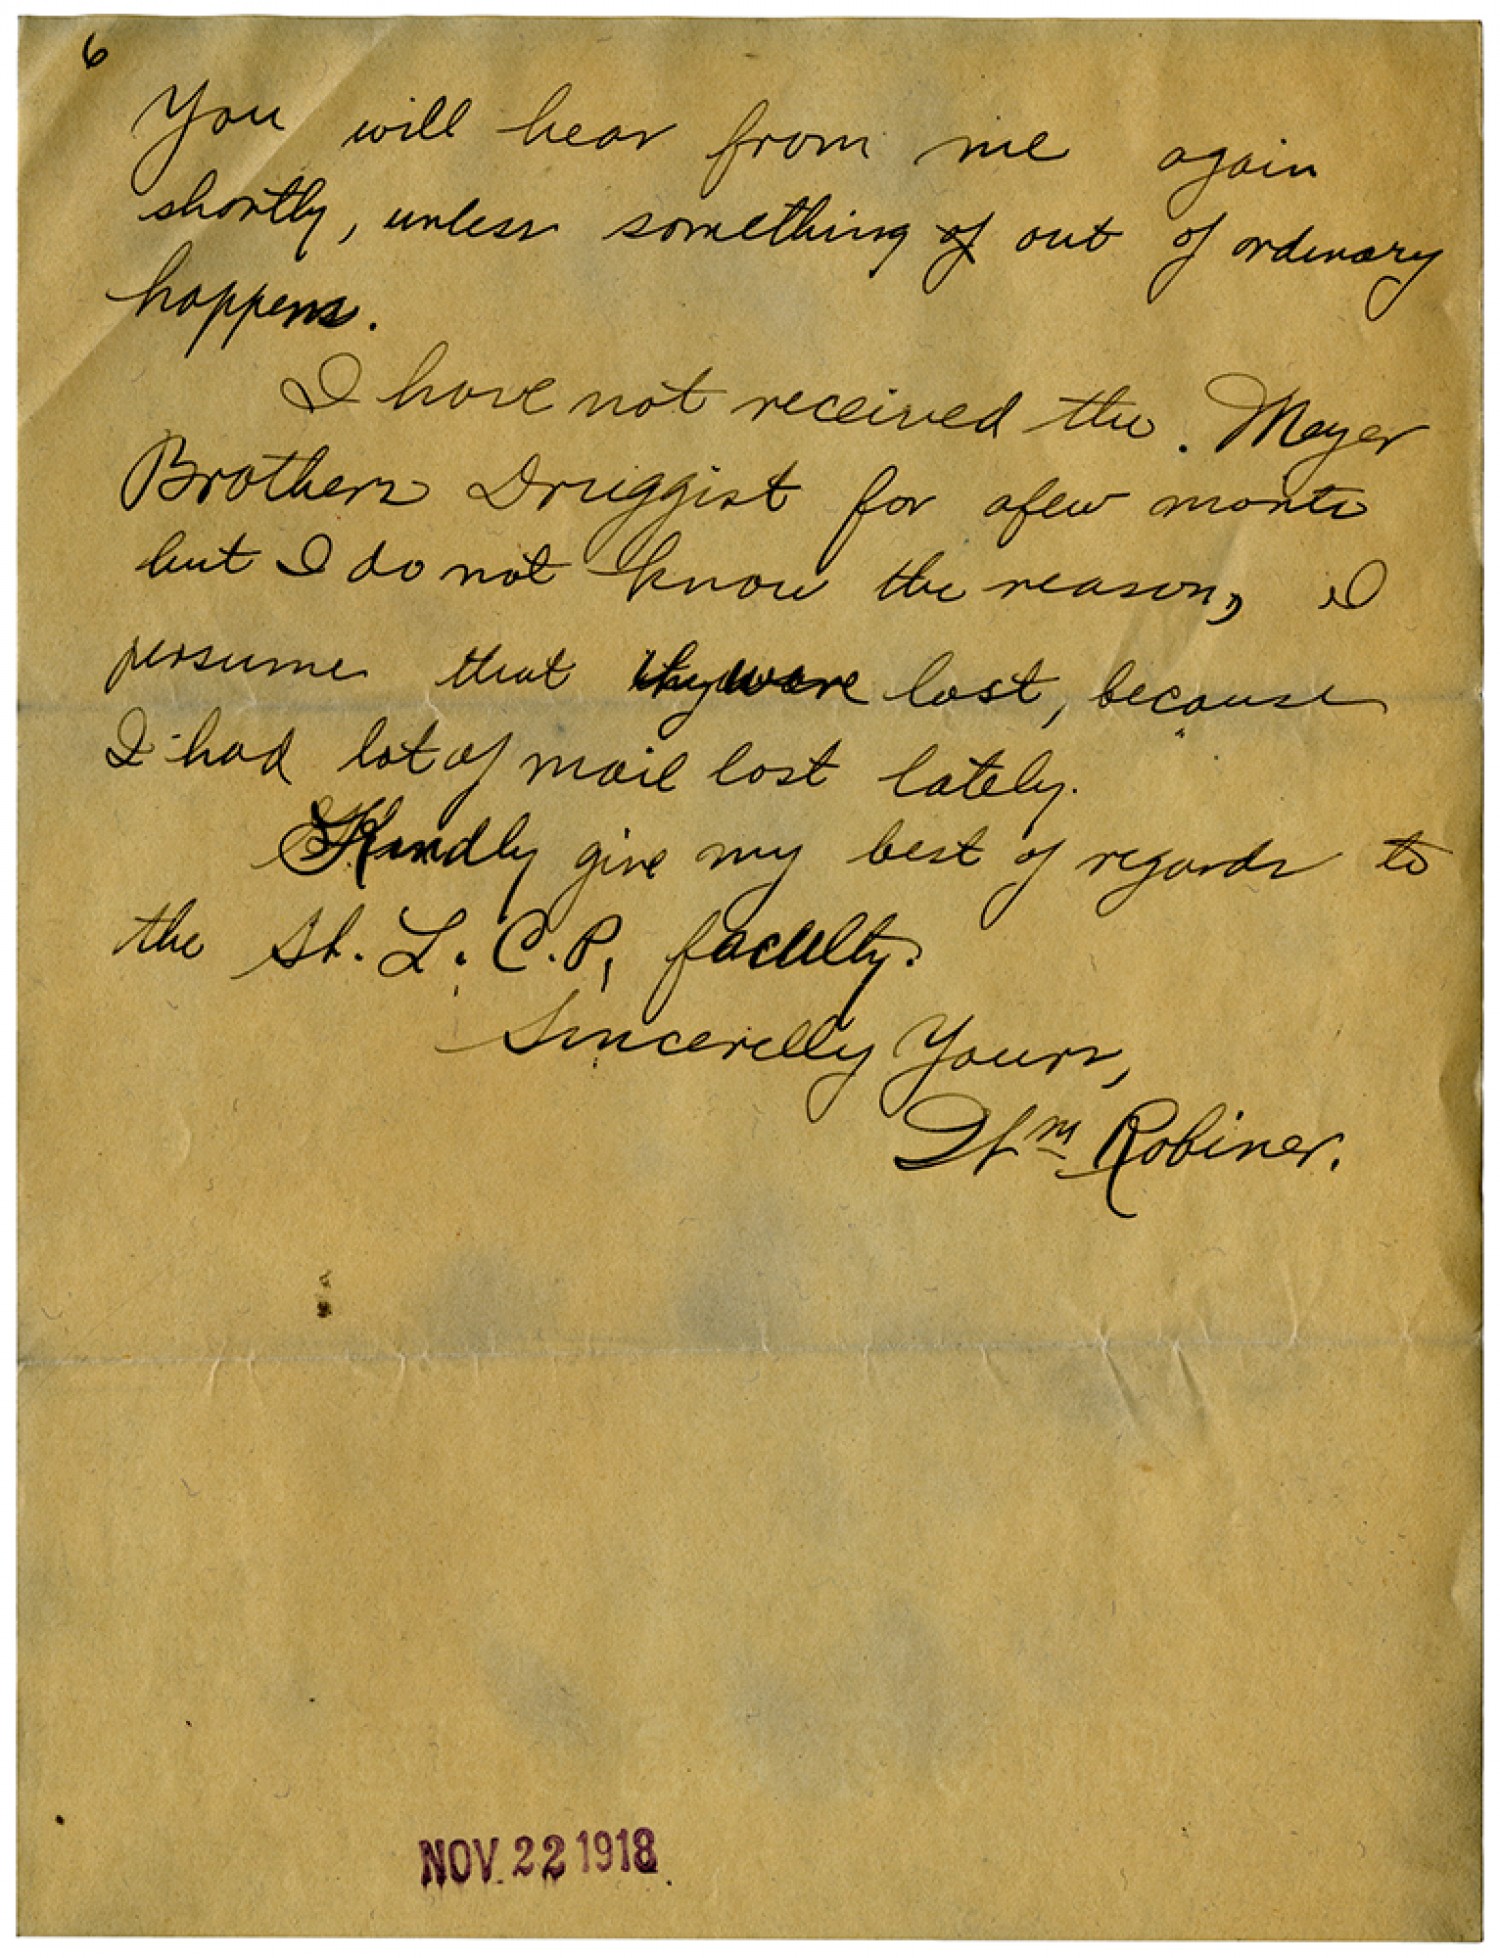 6
You will hear from me again
shortly, unless something of out of ordinary
happens.
I have not received the. Meyer
Brothers Druggist for afew monts
but I do not know the reason, I
persume that thy were lost, because
I had lot of mail lost lately.
Kindly give my best of regards to
the St. L. C. P. faculty.
Sincerelly Yours,
Wm Robiner.
NOV 22 1918